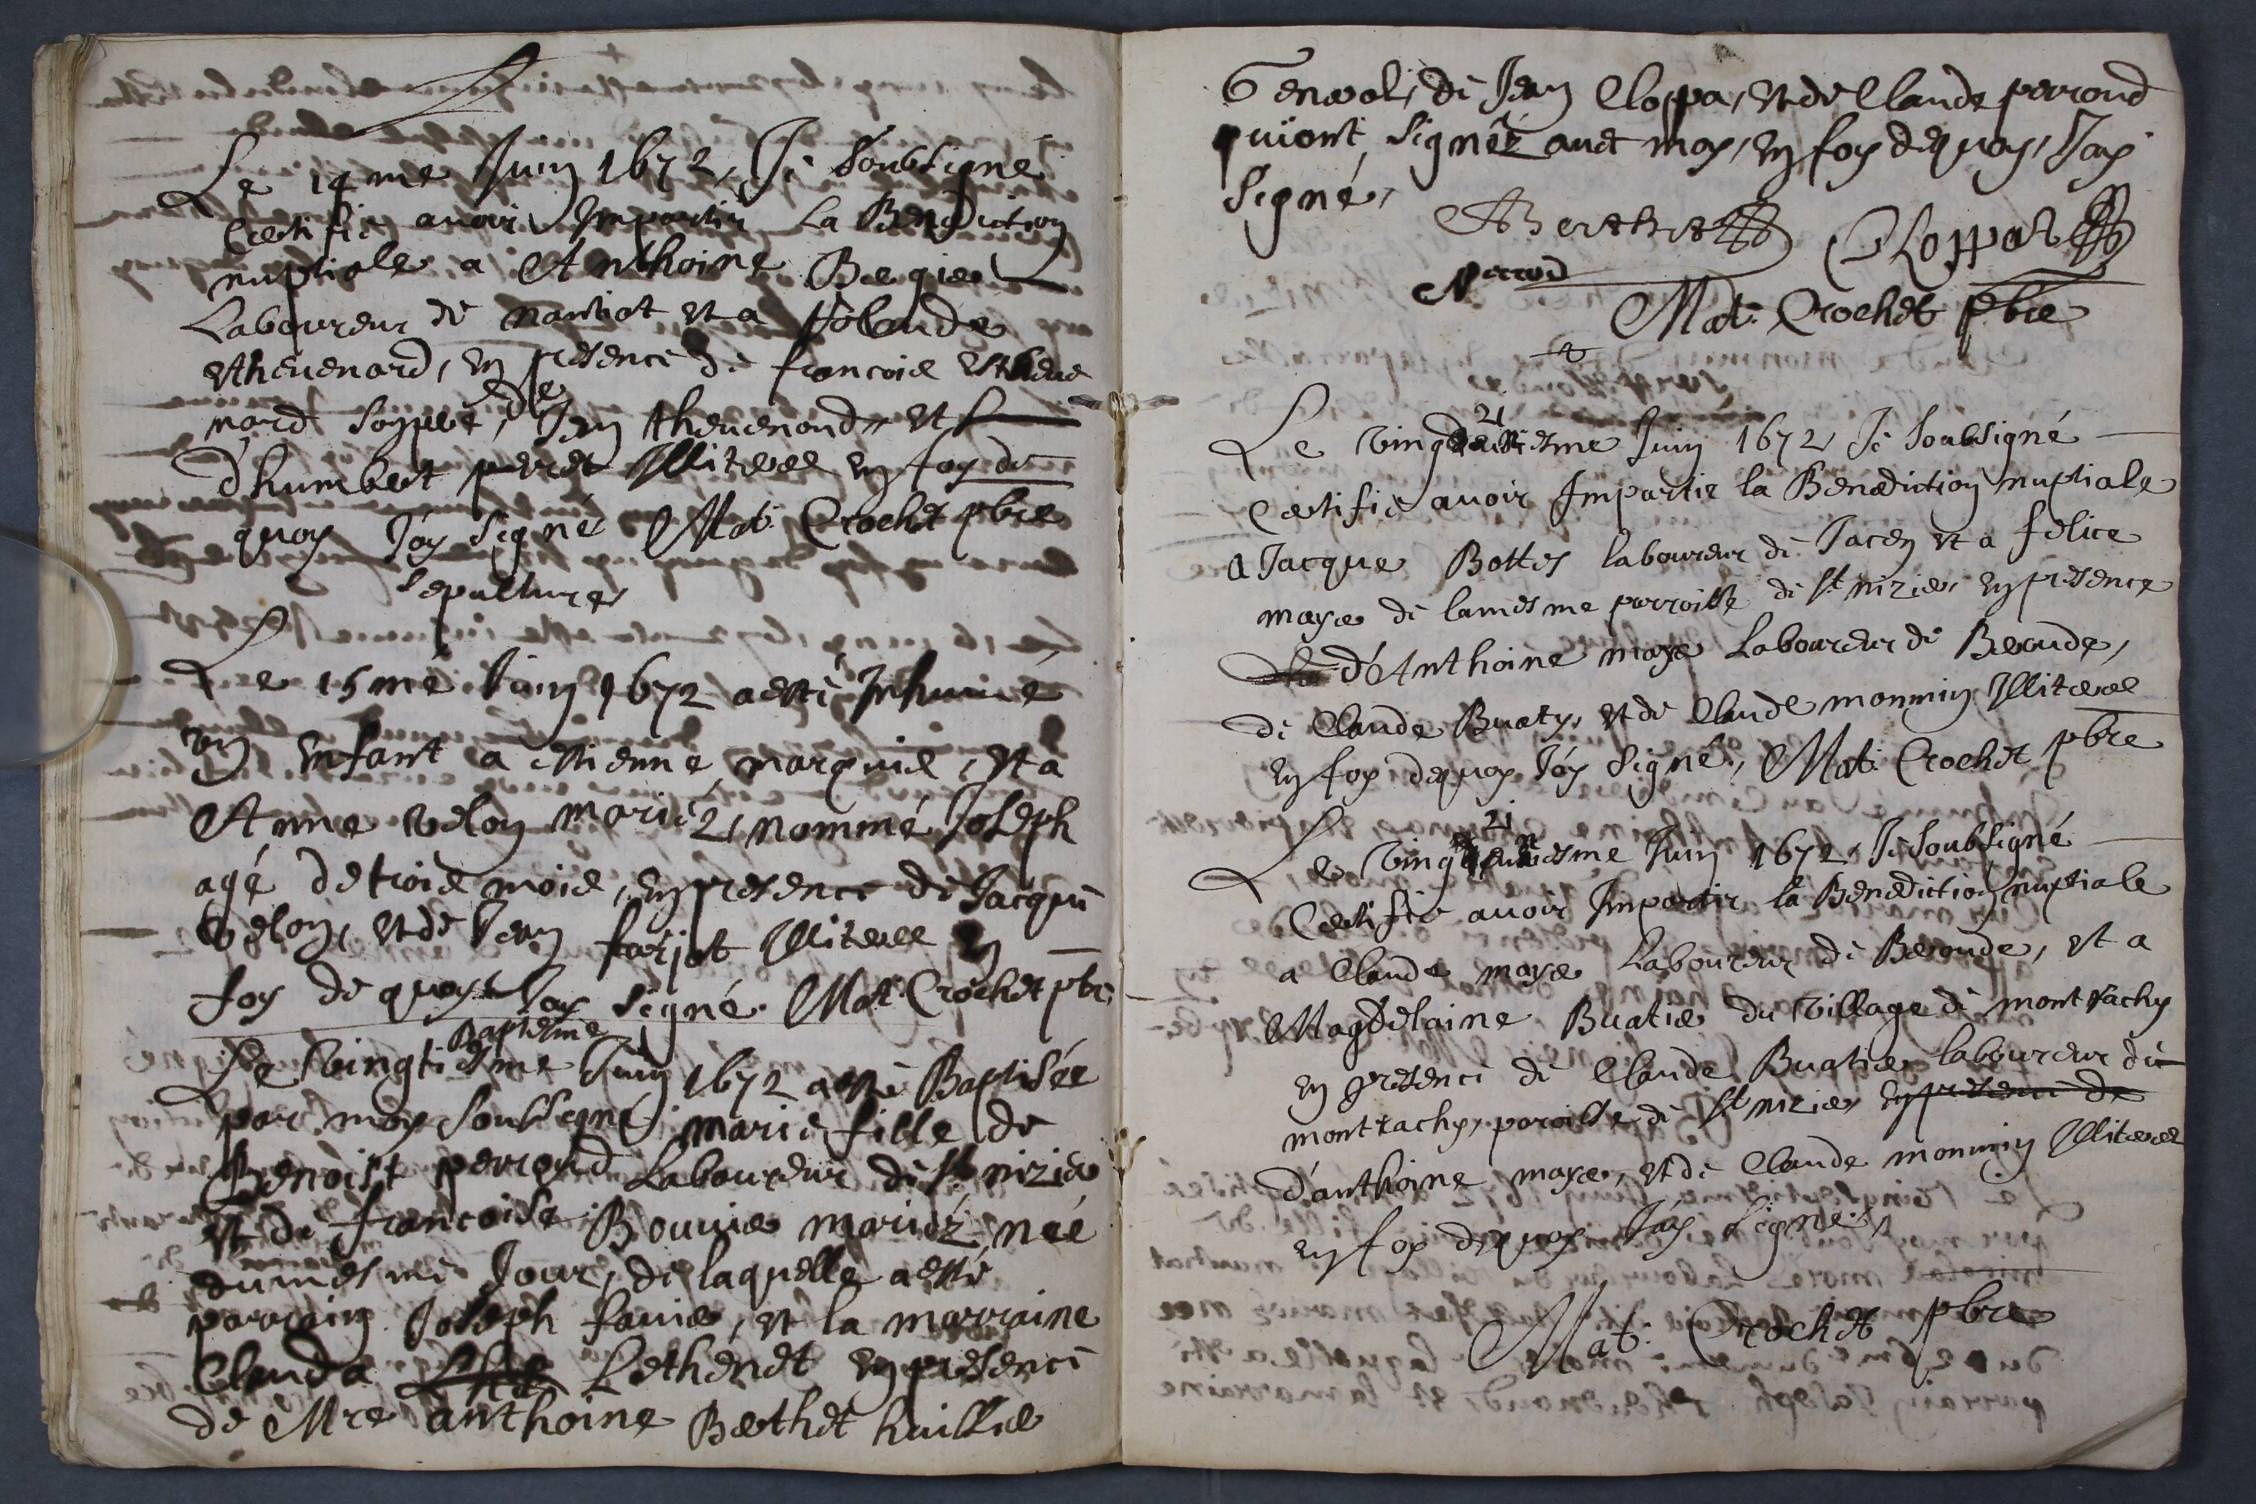 Le 14me Juin 1672, Je soubsigné
Certifie avoir Impartir La Benediction
nuptiale a Anthoine Begier
Laboureur de nantiat et a Yolande
Thevenard, en presence de francois Estheve
nard soyptet, de Jean thevenond et
d'humbert perret Illiteres en foy de
quoy J'ay signé Mat. Crochet pbre
Sepulture
Le 15me Juin 1672 a esté Inhumé
un enfant a estienne marquis, et a
Anne velon mariéz, nommé Joseph
agé de trois mois, en presence de Jacque
velon, et de Jean farjot Illiteres en
foy de quoy J'ay signé. Mat. Crochet pbre
Baptesme
Le Vingtiesme Juin 1672 a esté Baptisée
par moy soubsigné marie fille de
Benoist perrond Laboureur de st. nizier
et de francoise Bouvier mariéz, née
du mesme Jour, de laquelle a esté
parrain Joseph favier, et la marraine
Clauda Lethenet en presence
de Mre anthoine Berthet huissier
Genevol, de Jean Cloppa, et de Claude perrond
qui ont signéz avec moy, en foy de quoy, J'ay
signé,
ABerthet Cloppat
Perrond
Mat. Crochet pbre
21
Le Vingt iesme Juin 1672, Je soubsigné
Certifie avoir Impartir la Benediction nuptiale
a Jacque Bottes laboureur de Jacen et a felice
mayer de la mesme parroisse de st. nizier, en presence
d'Anthoine mayer Laboureur de Beronde,
de Claude Buaty, et de Claude monnin Illiteres
en foy de quoy J'ay signé, Mat. Crochet pbre
21
Le Vingt iesme Juin 1672, Je soubsigné
Certifie avoir Impartir la Benediction nuptiale
a Claude mayer Laboureur de Beronde, et a
Magdelaine Buatier du Village de montrachy
en presence de Claude Buatier laboureur du
montrachy, paroisse de st. nizier en presence de
d'anthoine mayer, et de Claude monnin Illiteres
en foy de quoy J'ay signé,
Mat. Crochet pbre